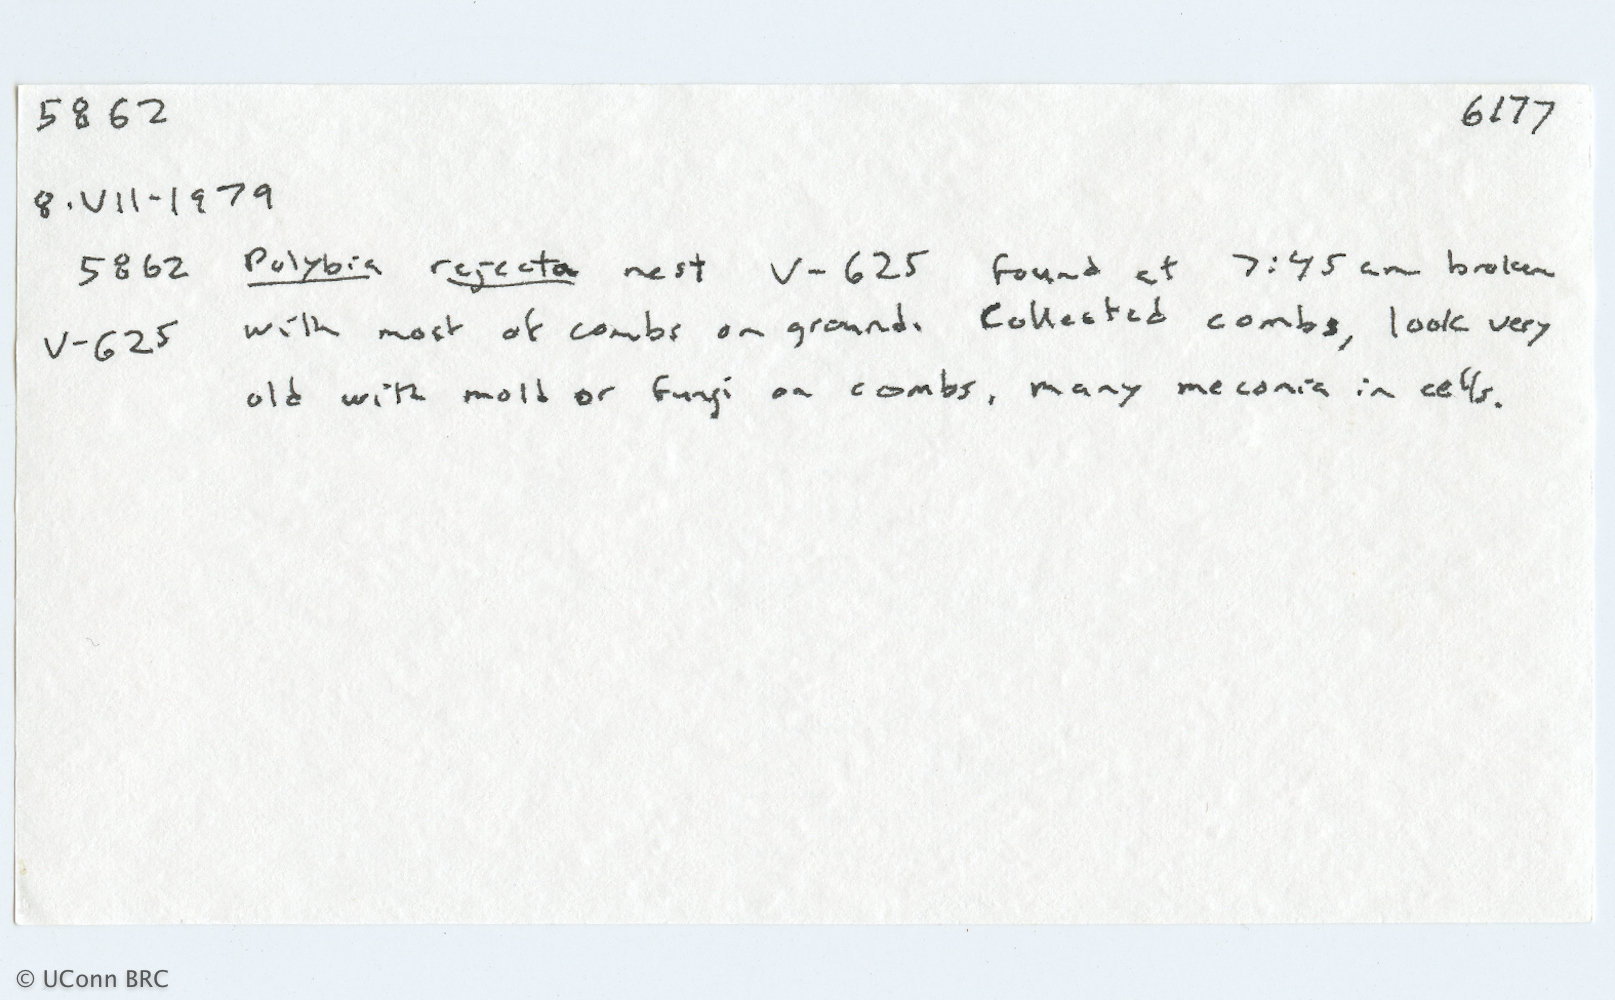 5862 6177
8.VII-1979
5862 Polybia rejecta nest V-625 found at 7:45 am broken
V-625 with most of combs on ground. Collected combs, look very
old with mold or fungi on combs, many meconia in cells.
© UConn BRC